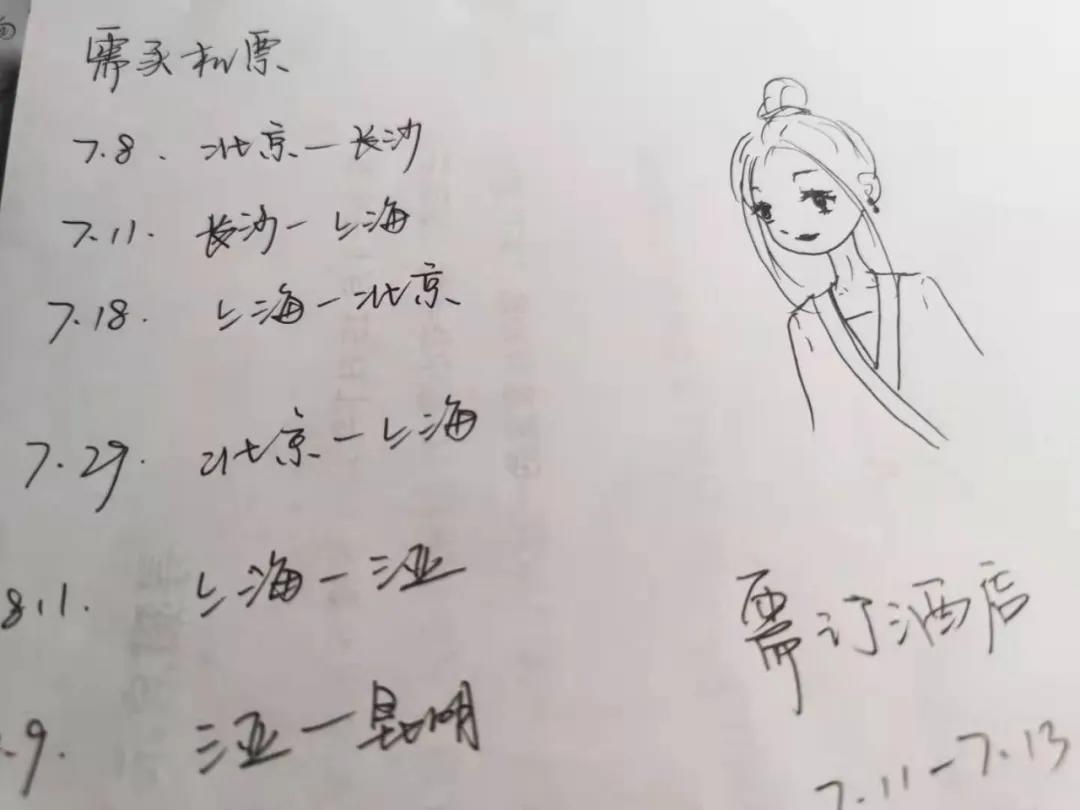 需买机票
7.8. 北京—长沙
7.11. 长沙—上海
7.18. 上海—北京
7.29. 北京—上海
8.1. 上海—三亚
.9. 三亚—昆明
需订酒店
7.11—7.13